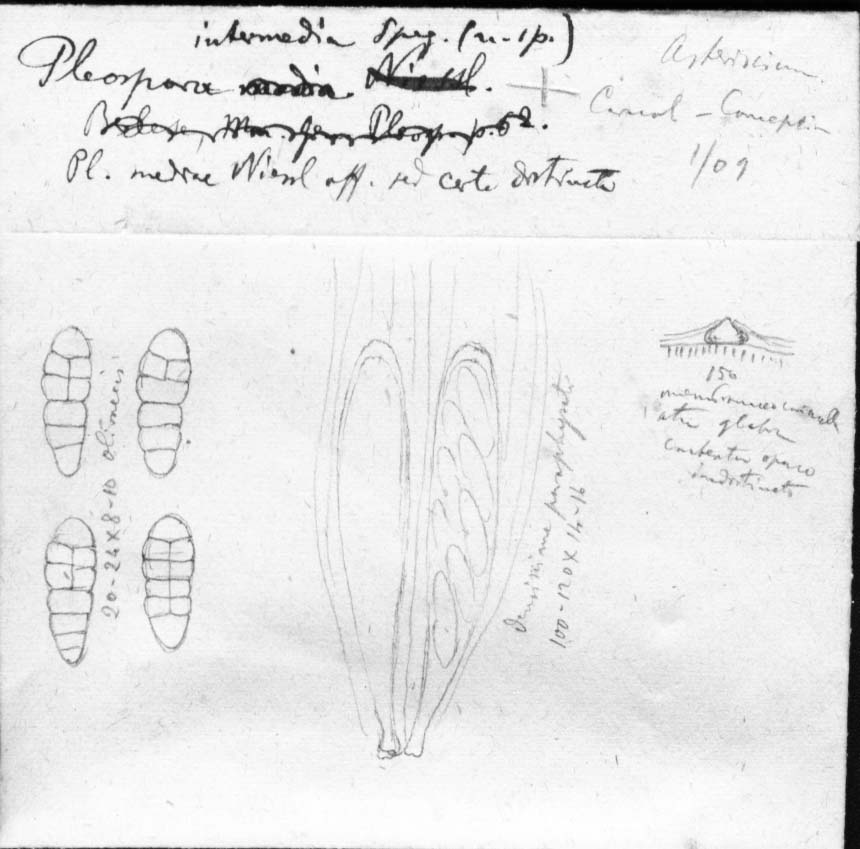 intermedia Speg. (n. sp.)
Pleospora media. Niessl.
Pleosp. p. 62.
Pl. mediae Niessl aff. sed certe distincta
Asteriscium
Cerral - Concepción
1/09
20-24×8-10 olivacei
densissime paraphysati
100-120×14-16
150
membranaceo
atra glabra
contextu opaco
indistincto